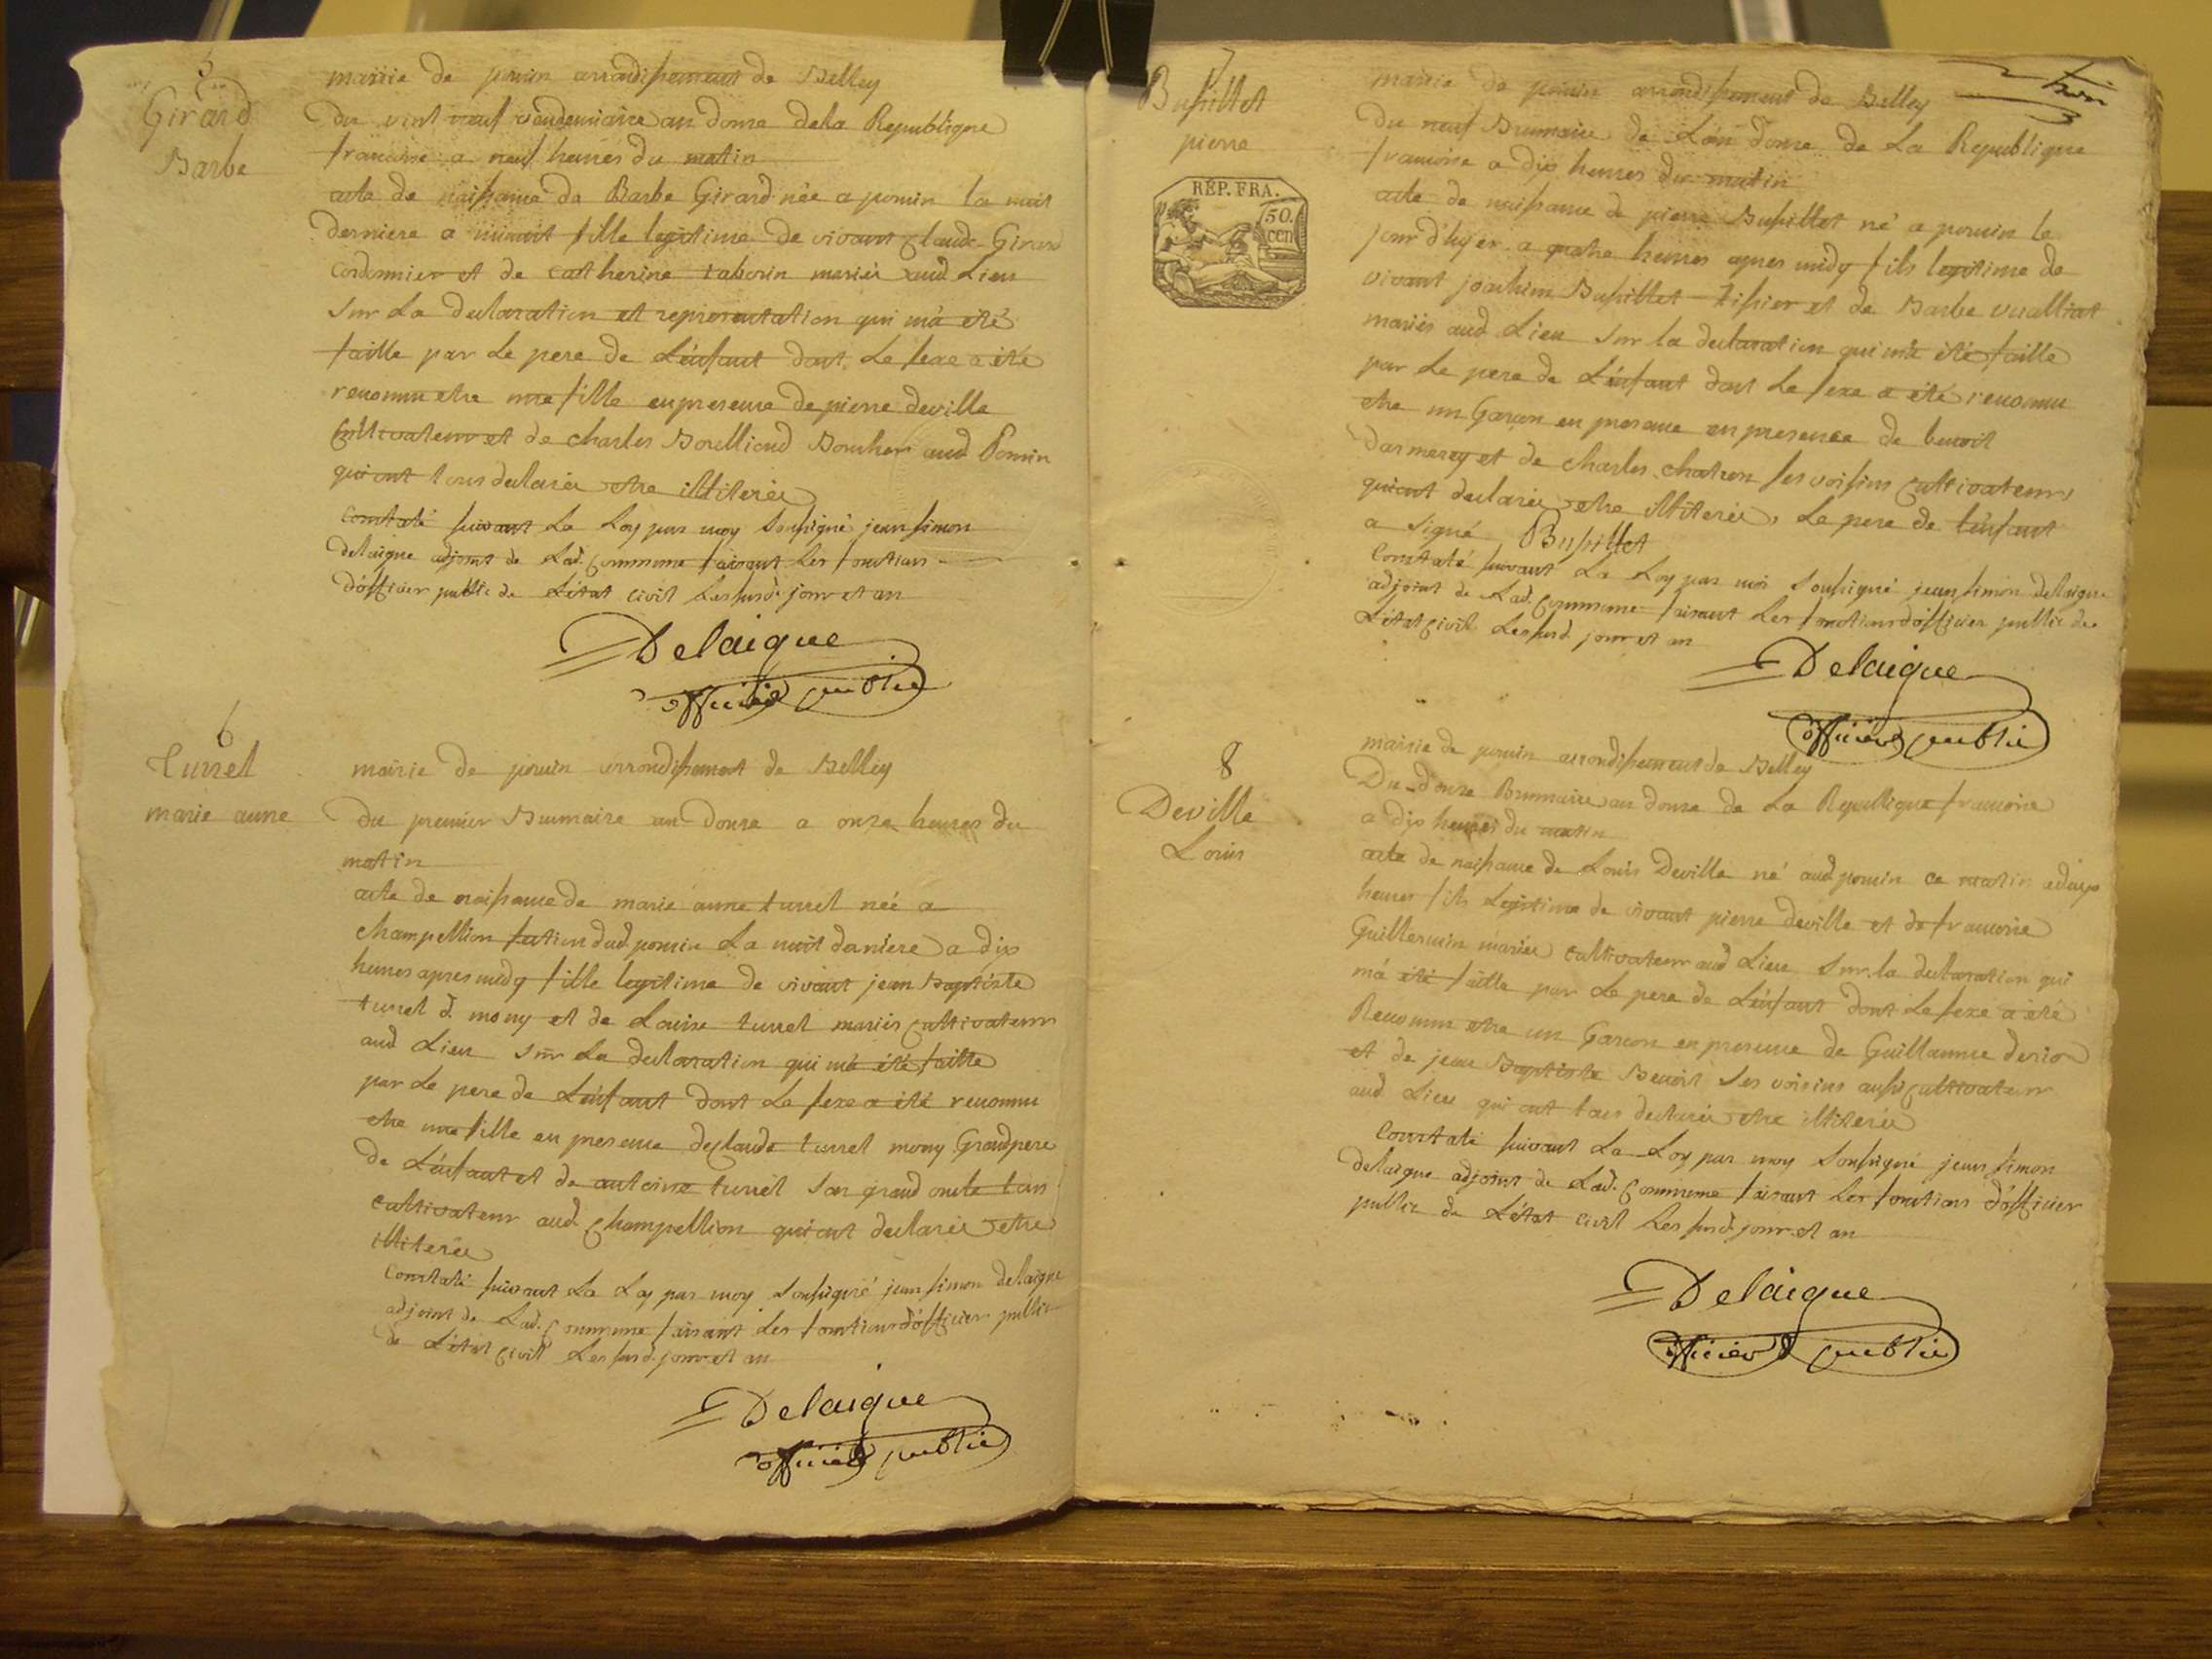 5
Girard
Barbe
mairie de pouin arrondissement de Belley
Du vint neuf vendemiaire an douze dela Republique
francoise a neuf heures du matin
acte de naissance de Barbe Girard née a pouin la nuit
derniere a minuit fille legitime de vivant Claude Girard
Cordonnier et de catherine taborin mariés aud. Lieu
sur La declaration et representation qui m'a été
faitte par Le pere de L'enfant dont Le sexe a été
reconnu etre une fille en presence de pierre deville
Cultivateur et de charles Borelliond Boucher aud Pouin
qui ont tous declarés etre illiterés
Constaté suivant La Loy par moy Soussigné jean simon
delaigue adjoint de Lad. Commune faisant Les fonctions
d'officier public de L'état civil Les susd. jour et an
Delaigue
officier public
6
turrel
marie anne
mairie de pouin arrondissement de Belley
Du premier Brumaire an Douze a onze heures du
matin
acte de naissance de marie anne turrel née a
champellion section dud pouin La nuit derniere a dix
heures apres midy fille legitime de vivant jean Baptiste
turrel d. mony et de Louise turrel mariés Cultivateur
aud Lieu sur La declaration qui m'a été faitte
par Le pere de L'enfant dont Le sexe a été reconnu
etre une fille en presence de Claude turrel mony Grandpere
de L'enfant et de antoine turrel son grand oncle tous
Cultivateur aud. Champellion qui ont declarés etre
illiterés
Constaté suivant La Loy par moy Soussigné jean simon delaigue
adjoint de Lad. Commune faisant Les fonctions d'officier public
de L'état Civil Les susd. jour et an
Delaigue
officier public
7
Bussillet
pierre
REP. FRA.
50.
cen
mairie de pouin arrondissement de Belley
Du neuf Brumaire de L'an Douze de La Republique
francoise a dix heures du matin
acte de naissance de pierre Bussillet né a pouin le
jour d'hyer a quatre heures apres midy fils legitime de
vivant joachim Bussillet tissier et de Barbe vualliat
mariés aud Lieu sur la declaration qui m'a été faitte
par Le pere de L'enfant dont Le sexe a été reconnu
etre un Garçon en presence en presence de benoit
Darmerey et de charles chatron ses voisins Cultivateurs
qui ont declarés etre illiterés, Le pere de L'enfant
a signé Bussillet
Constaté suivant La Loy par moi Soussigné jean simon delaigue
adjoint de Lad. Commune faisant Les fonctions d'officier public de
L'état Civil Les susd. jour et an
Delaigue
officier public
8
Deville
Louis
mairie de pouin arrondissement de Belley
Du douze Brumaire an douze de La Republique francoise
a dix heures du matin
acte de naissance de Louis Deville né aud pouin ce matin a deux
heures fils Legitime de vivant pierre deville et de francoise
Guillermin mariés Cultivateur aud Lieu sur la declaration qui
m'a été faitte par Le pere de L'enfant dont Le sexe a été
Reconnu etre un Garcon en presence de Guillaume
et de jean Baptiste Benoit ses voisins aussi Cultivateur
aud Lieu qui ont tous declarés etre illiterés
Constaté suivant La Loy par moy Soussigné jean simon
delaigue adjoint de Lad. Commune faisant Les fonctions d'officier
public de L'état Civil Les susd. jour et an
Delaigue
officier public